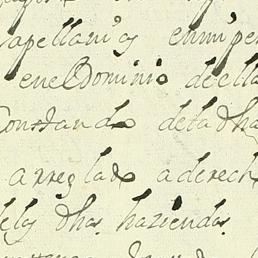 Capellanias en mi pe
en el Dominio de ella
Constando de la dha
arreglado a derech
de las dhas haziendas